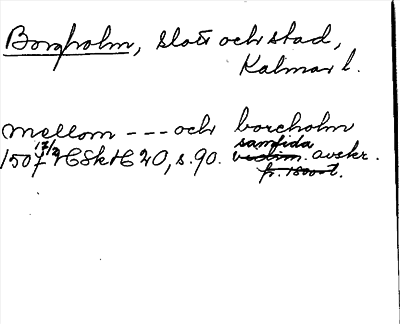 Borgholm, slott och stad,
Kalmar l.
mellom --- och borcholm
samtida
1507 17/2 HSH 20, s. 90. vidim. avskr.
fr. 1500-t.